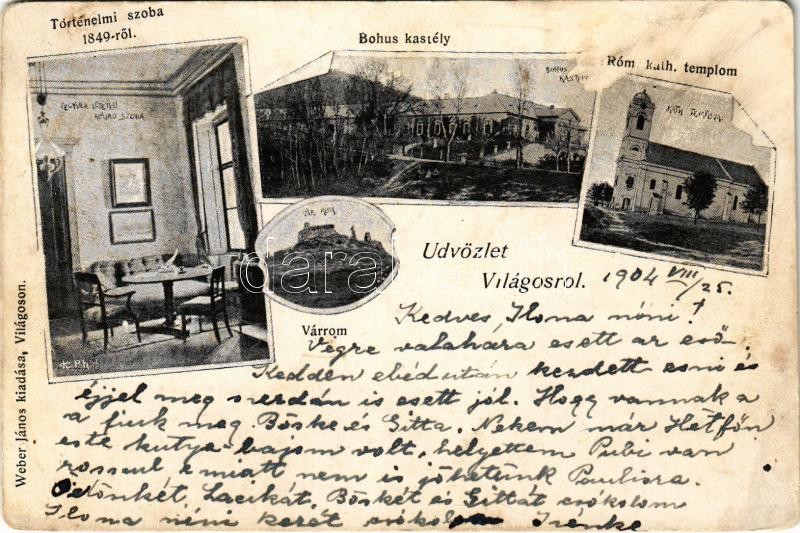 Történelmi szoba
1849-ről.
Bohus kastély
Róm. kath. templom
FEGYVER LETÉTELI
ALÁIRÓ SZOBA
BOHUS
KASTÉLY
KATH TEMPLOM
VÁR ROM
Várrom
Udvözlet
Világosról.
1904 VIII/25.
Kedves Ilona néni!
Végre valahára esett az eső.
Kedden ebédután kezdett esni és
éjjel meg szerdán is esett jól. Hogy vannak a
a fiuk meg Böske és Gitta. Nekem már Hétfőn
este kutya-bajom volt, helyettem Pubi van
rosszul e miatt nem is jöhetünk Paulisra.
Ödönkét, Lacikát, Böskét és Gittát csókolom
Ilona néni kezét csókolom Irénke
Weber János kiadása, Világoson.
darabanth